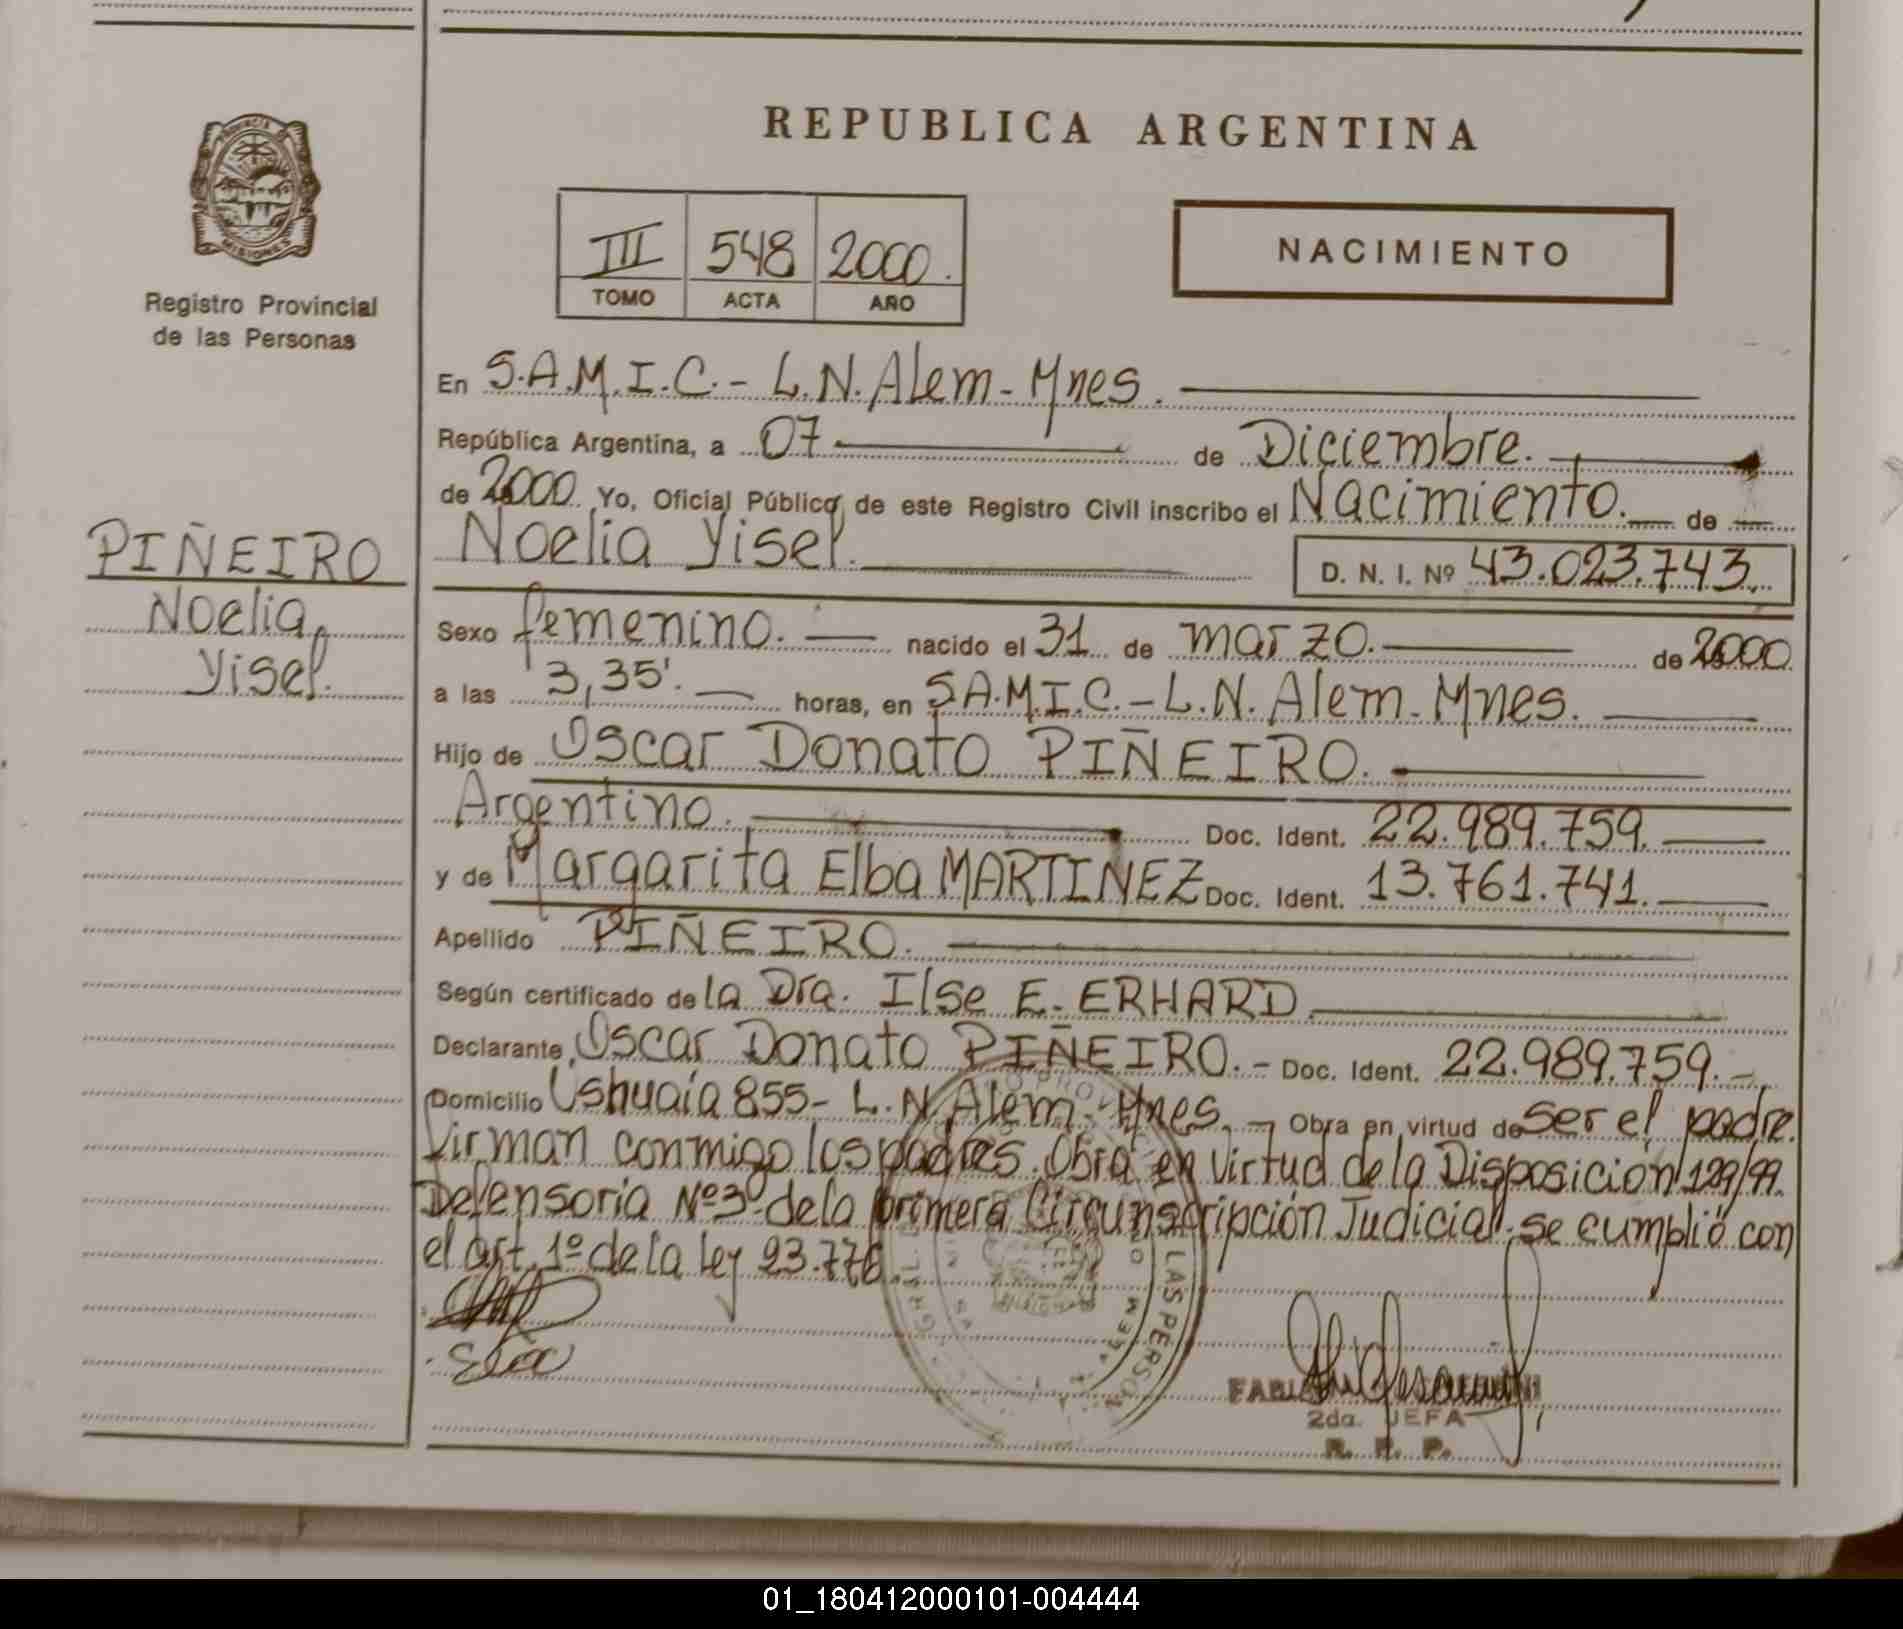 REPUBLICA ARGENTINA
PROVINCIA DE
MISIONES
Registro Provincial
de las Personas
III 548 2000.
TOMO ACTA AÑO
NACIMIENTO
En S.A.M.I.C.- L.N. Alem - Mnes.
República Argentina, a 07 de Diciembre.
de 2000. Yo, Oficial Público de este Registro Civil inscribo el Nacimiento. de
Noelia Yisel. D. N. I. Nº 43.023.743.
PIÑEIRO
Noelia
Yisel.
Sexo femenino. nacido el 31 de marzo. de 2000
a las 3,35'. horas, en S.A.M.I.C.- L.N. Alem - Mnes.
Hijo de Oscar Donato PIÑEIRO.
Argentino. Doc. Ident. 22.989.759.
y de Margarita Elba MARTINEZ Doc. Ident. 13.761.741.
Apellido PIÑEIRO.
Según certificado de la Dra. Ilse E. ERHARD.
Declarante, Oscar Donato PIÑEIRO.- Doc. Ident. 22.989.759.-
Domicilio Ushuaia 855- L.N. Alem - Mnes. - Obra en virtud de ser el padre.
Firman conmigo los padres. Obra en virtud de la Disposición 129/99.
Defensoria Nº3 de la primera Circunscripción Judicial. se cumplió con
el art. 1º de la ley 23.776.
LAS PERSON
2da. JEFA
R. P. P.
01_180412000101-004444